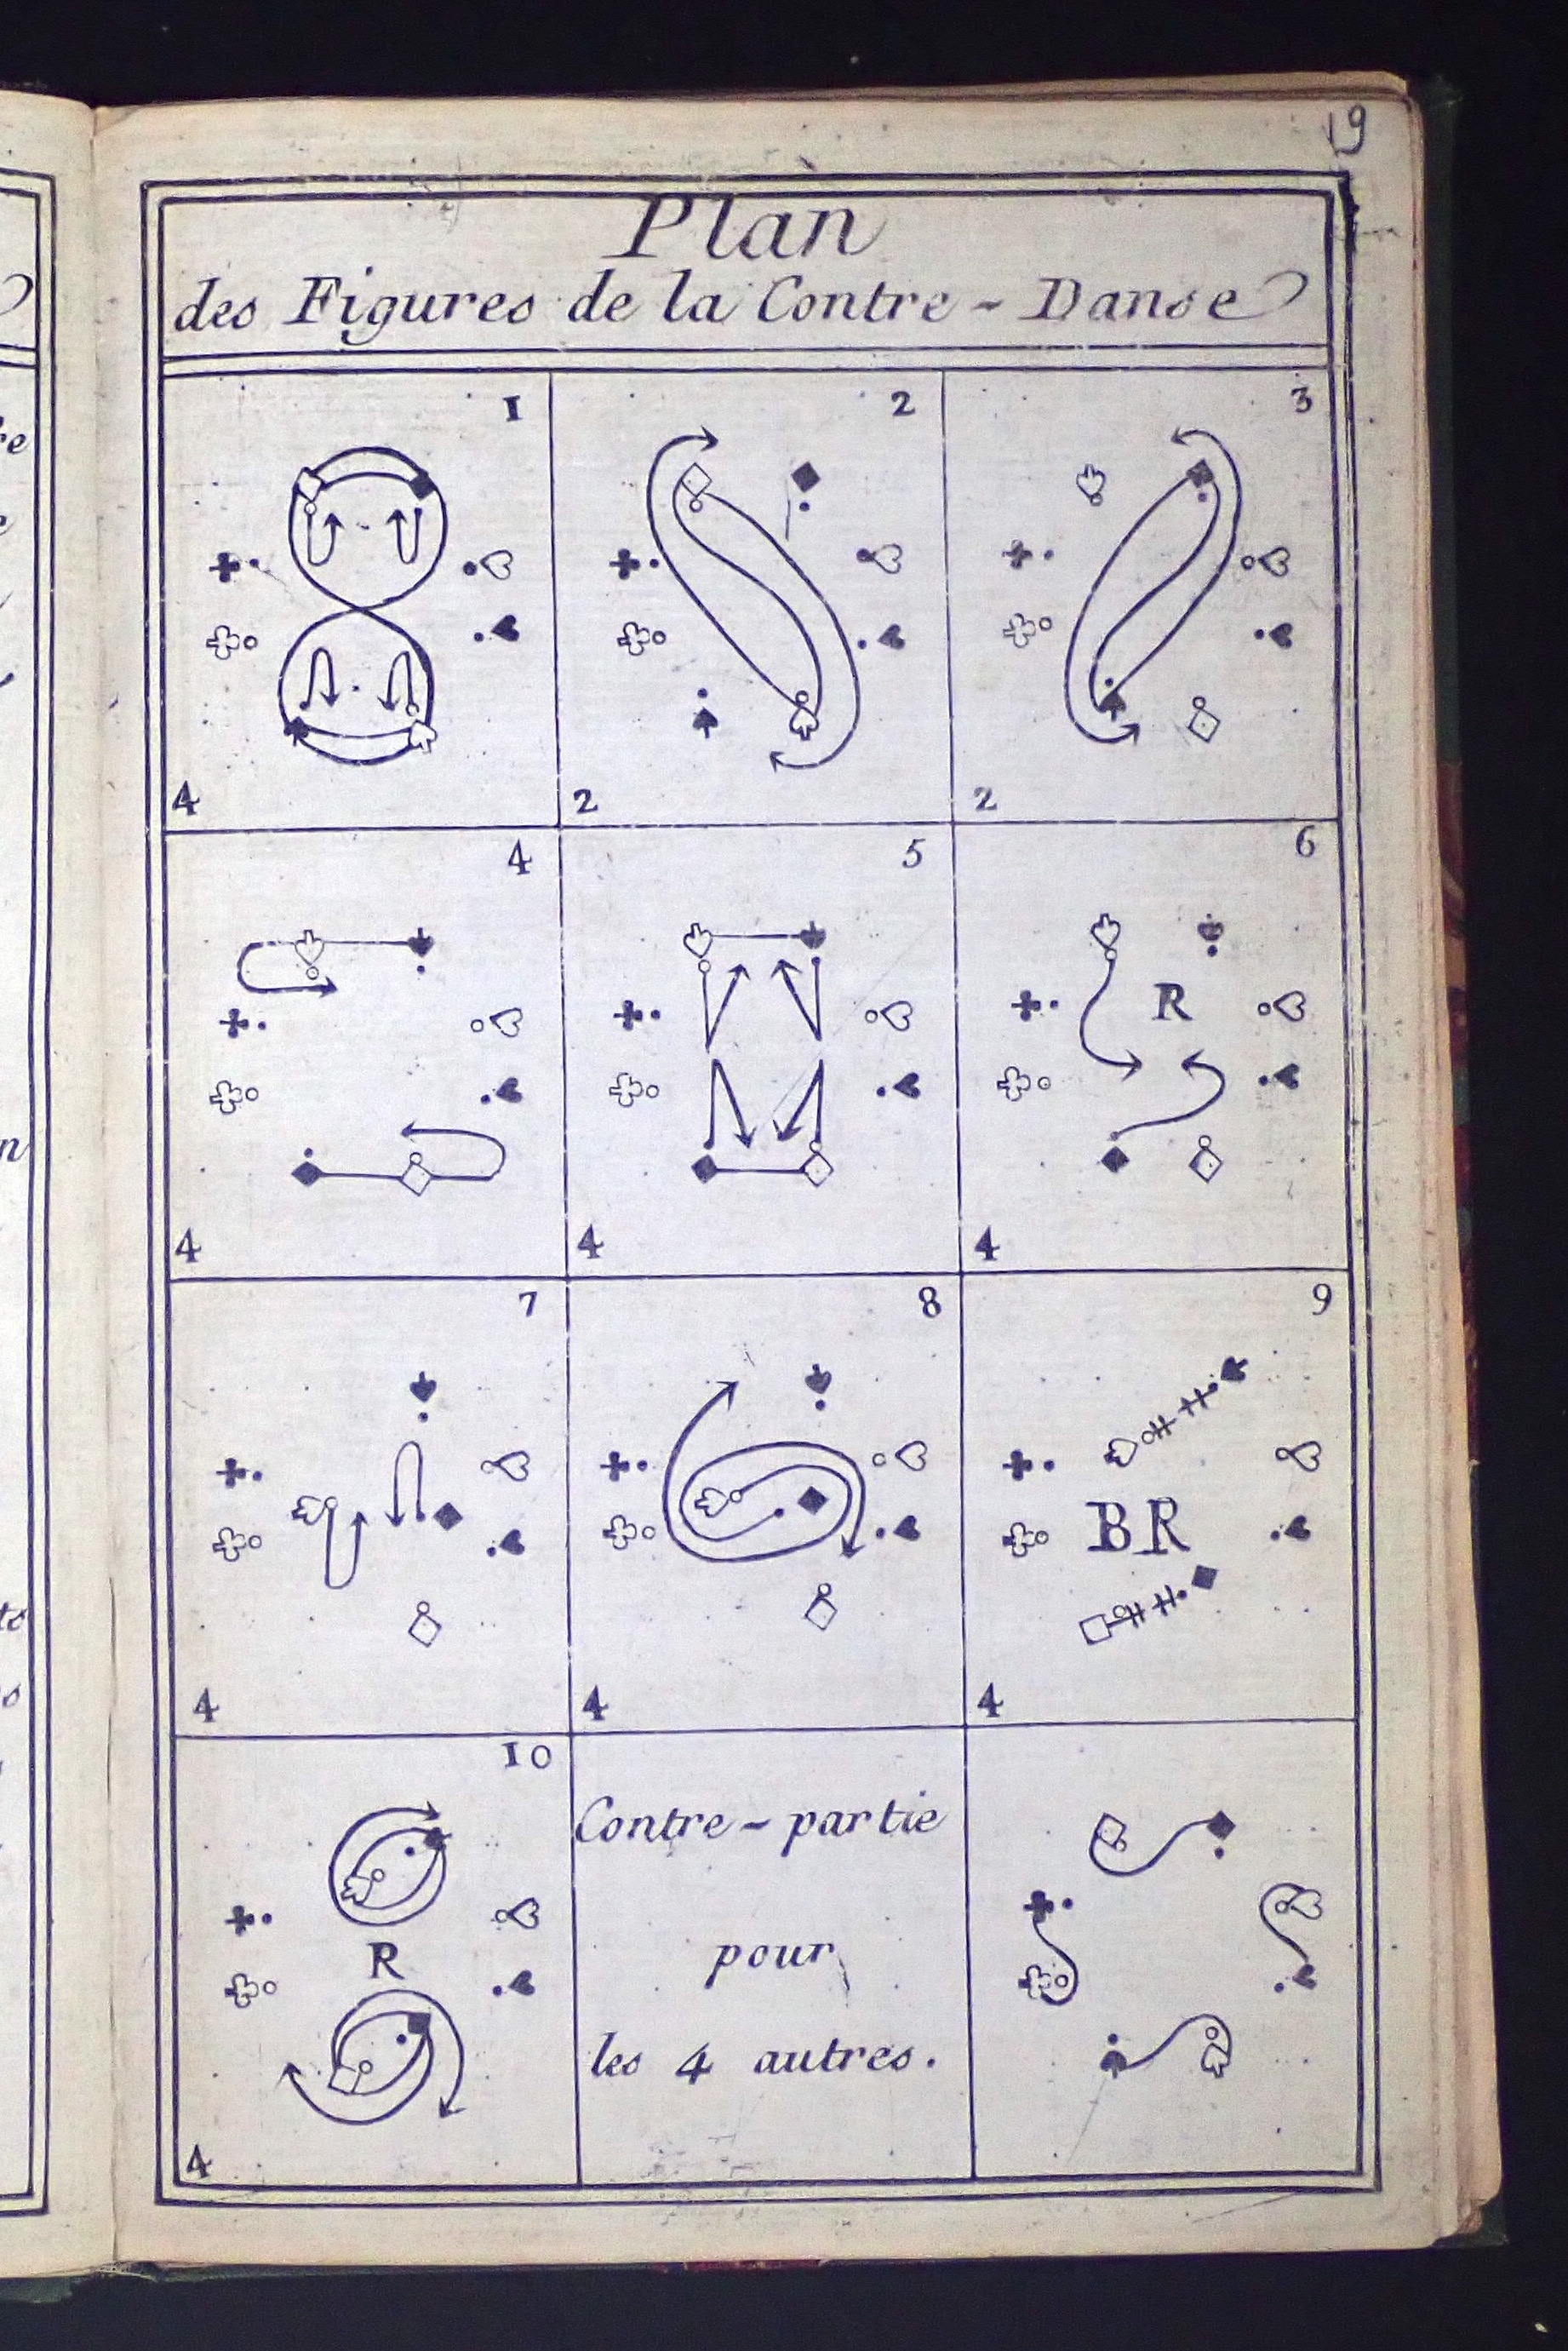 19
Plan
des Figures de la Contre-Danse
1
2
3
4
2
2
4
5
6
R
4
4
4
7
8
9
BR
4
4
4
10
R
4
Contre-partie
pour
les 4 autres.